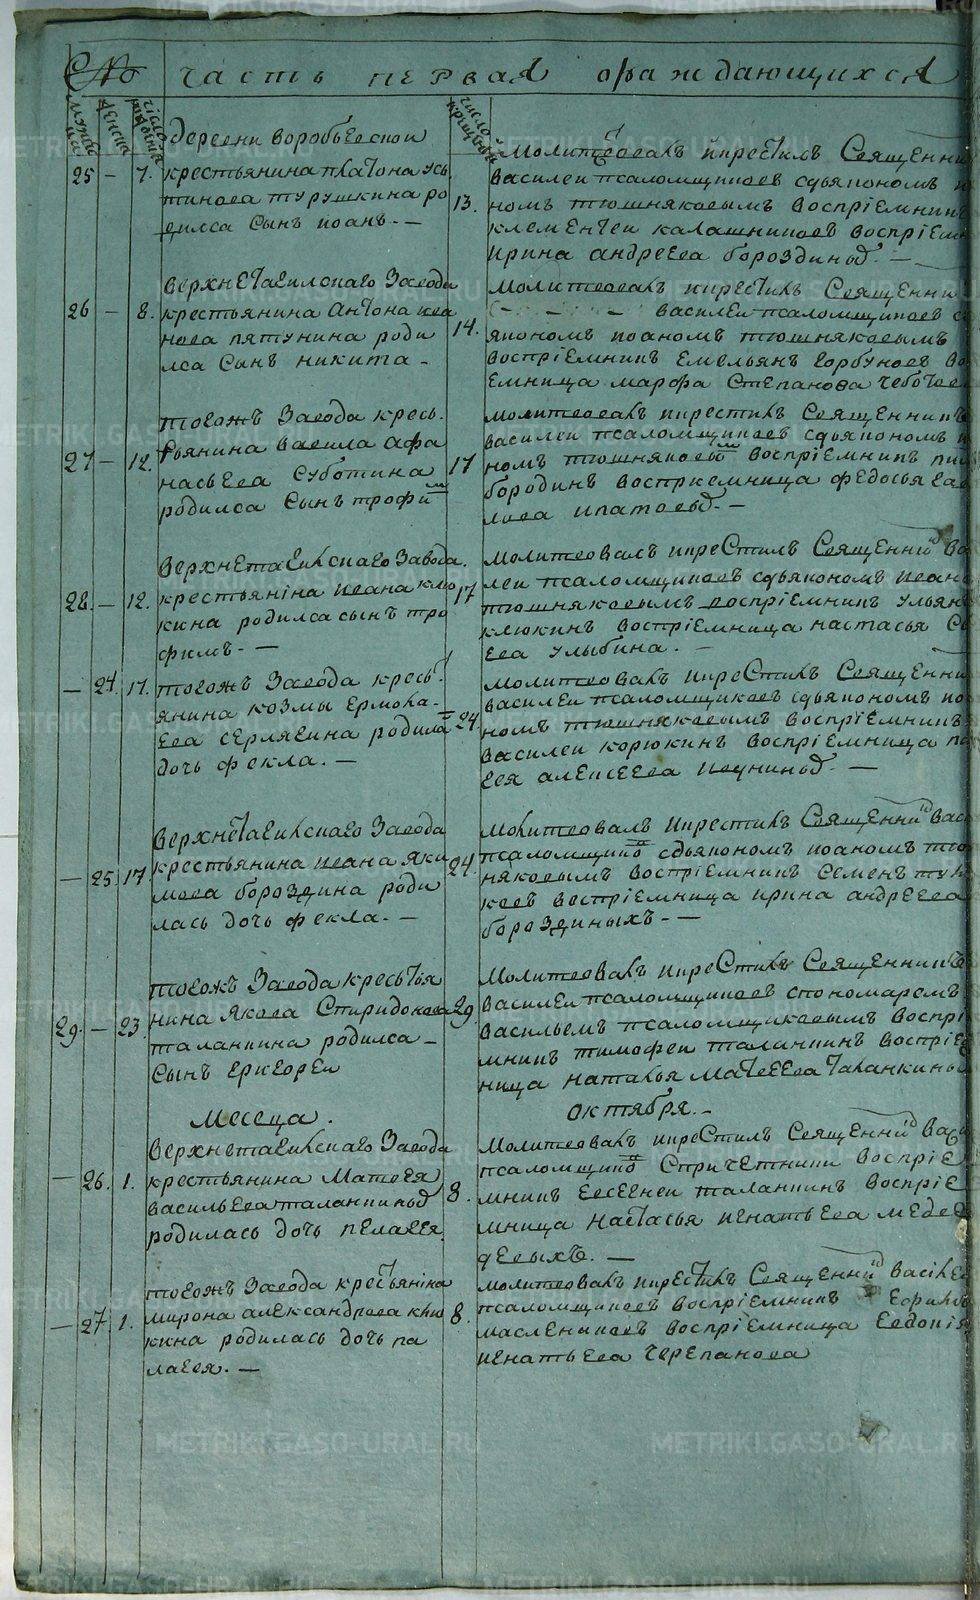 № часть первая ораждающихся
мужеска женска число рождения
число крещения
деревни воробьевской
25 – 7. крестьянина платона усъ
тинова турушкина ро
дился сынъ иоанъ. —
13.
молитвовалъ икрестилъ Священни
василеи псаломщиковъ сдьякономъ и
номъ тюшняковымъ воспріемникъ
клементеи калашниковъ воспріем
ирина андреева бороздиныхъ. —
верхнетагилскаго Завода
26 – 8. крестьянина антона ива
нова пятунина роди
лся сынъ никита –
14.
молитвовалъ икрестилъ Священни
василеи псаломщиковъ с
якономъ иоаномъ тюшняковымъ
воспріемникъ Емельянъ горбуновъ во
емница марфа Степанова чебочев
тогожъ Завода кресь
27 – 12. тьянина васила афа
насьева суботина
родился сынъ трофи м
17
молитвовалъ икрестилъ Священникъ
василеи псаломщиковъ сдьякономъ и
номъ тюшняковы м воспріемникъ
бородинъ восприемница федосья сав
лова ипатовы. —
верхнетагилскаго Завода.
28. – 12. крестьяніна ивана клю
кина родился сынъ тро
фимъ. —
17
молитвовалъ икрестилъ Священни ва
леи псаломщиковъ сдьякономъ иоан
тюшняковымъ воспріемникъ ульян
клюкинъ воспріемница настасья са
ева улыбина. —
– 24. 17. тогожъ Завода кресь
янина козмы Ермола
ева сЕрлягина родила
дочь фекла. —
24.
молитвовалъ икрестилъ Священни
василеи псаломщиковъ сдьякономъ ио
номъ тюшняковымъ воспріемникъ
василеи корюкинъ воспріемница па
гея алексеева ичуниных. —
верхнетагилскаго Завода
– 25 17 крестьянина ивана яки
мова бороздина роди
лась дочь фекла. —
24.
молитвовалъ икрестилъ Священни вас
псаломщико в сдьякономъ иоаномъ тю
няковымъ воспріемникъ Семенъ
ковъ воспріемница ирина андреева
бороздиныхъ. —
тогожъ Завода крестья
29. – 23. нина якова Спиридонова
таланкина родился –
Сынъ григореи
29
молитвовалъ икрестилъ Священникъ
василеи псаломщиковъ спономаремъ
васильемъ псаломщиковымъ воспрі
мникъ тимофеи таланкинъ воспріе
ница наталья Матвеева таланкины
месеца. октября. –
верхнетагилскаго Завода
– 26. 1. крестьянина Матвея
васильева таланкины
родилась дочь пелагея
8.
молитвовалъ икрестилъ Священни ва
псаломщико в спричетники воспріе
мникъ евсегнеи таланкинъ воспріе
мница настасья игнатьева медве
девыхъ. —
тогожъ Завода крестьяніна
– 27 1. мирона александрова клю
кина родилась дочь па
лагея. —
8.
молитвовалъ икрестилъ Священни васіле
псаломщиковъ воспріемникъ Ефимъ
масленниковъ воспріемница Евдокія
игнатьева черепанова
METRIKI.GASO-URAL.RU